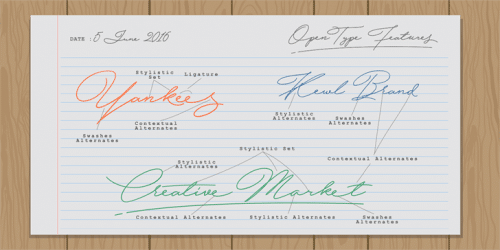 DATE : 5 June 2016
OpenType Features
Stylistic Set
Ligature
Yankees
Swashes Alternates
Contextual Alternates
Kewl Brand
Stylistic Alternates
Swashes Alternates
Contextual Alternates
Stylistic Set
Stylistic Alternates
Creative Market
Contextual Alternates
Stylistic Alternates
Swashes Alternates